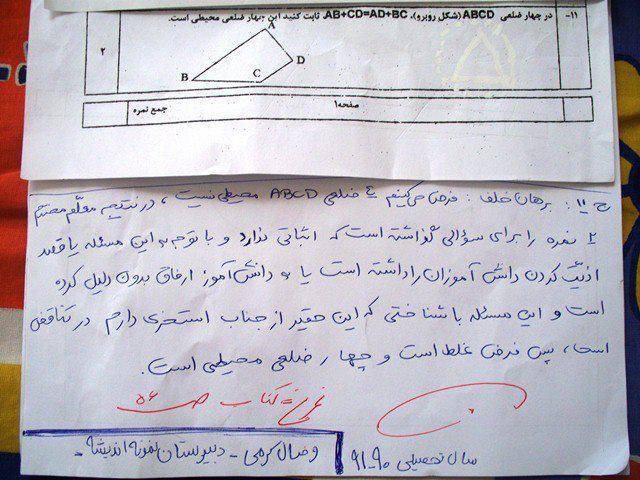 ۱۱- در چهار ضلعی ABCD (شکل روبرو)، AB+CD=AD+BC، ثابت کنید این چهار ضلعی محیطی است.
۲
A
B
C
D
صفحه۱
جمع نمره
ج ۱۱: برهان خلف: فرض می‌کنیم ۴ ضلعی ABCD محیطی نیست، در نتیجه معلّم محترم
۲ نمره را برای سؤالی گذاشته است که اثباتی ندارد و با توجه به این مسئله یا قصد
اذیّت کردن دانش آموزان را داشته است یا به دانش‌آموز ارفاق بدون دلیل کرده
است و این مسئله با شناختی که این حقیر از جناب استخری دارم در تناقض
است، پس فرض غلط است و چهار ضلعی محیطی است.
کتاب ص ۵۶
وصال کرمی - دبیرستان نمونه اندیشه -
سال تحصیلی ۹۰-۹۱